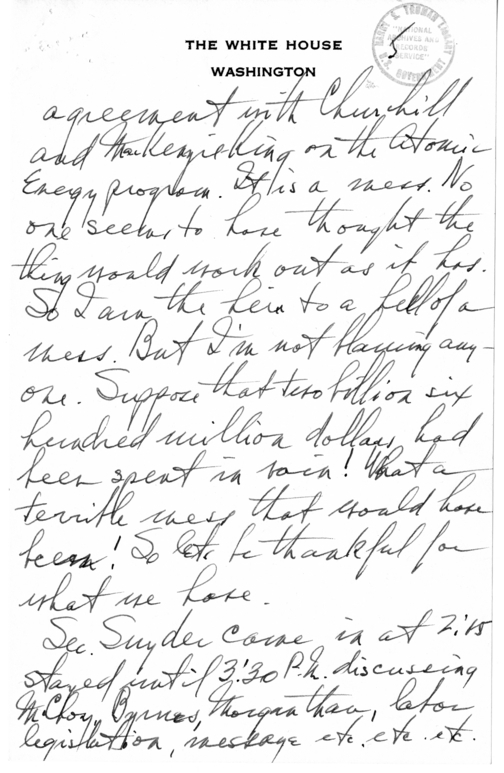 THE WHITE HOUSE
WASHINGTON
5
HARRY S. TRUMAN LIBRARY
"NATIONAL
ARCHIVES AND
RECORDS
SERVICE"
U.S. GOVERNMENT
agreement with Churchill
and MacKenzie King on the Atomic
Energy program. It is a mess. No
one seems to have thought the
thing would work out as it has.
So I am the heir to a hell of a
mess. But I'm not blaming any-
one. Suppose that two billion six
hundred million dollars had
been spent in vain! What a
terrible mess that would have
been! So let's be thankful for
what we have.
Sec. Snyder came in at 2:15
stayed until 3:30 P.M. discussing
McCloy, Byrnes, Morganthau, labor
legislation, message etc. etc. etc.